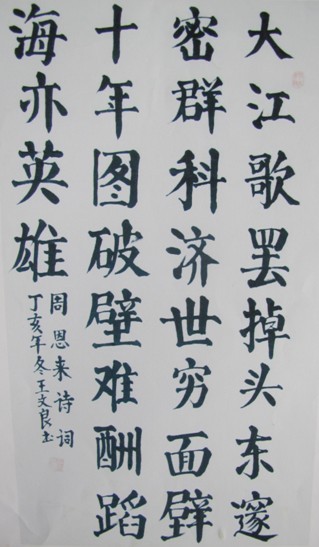 大江歌罢掉头东邃
密群科济世穷面壁
十年图破壁难酬蹈
海亦英雄
周恩来诗词
丁亥年冬王文良书